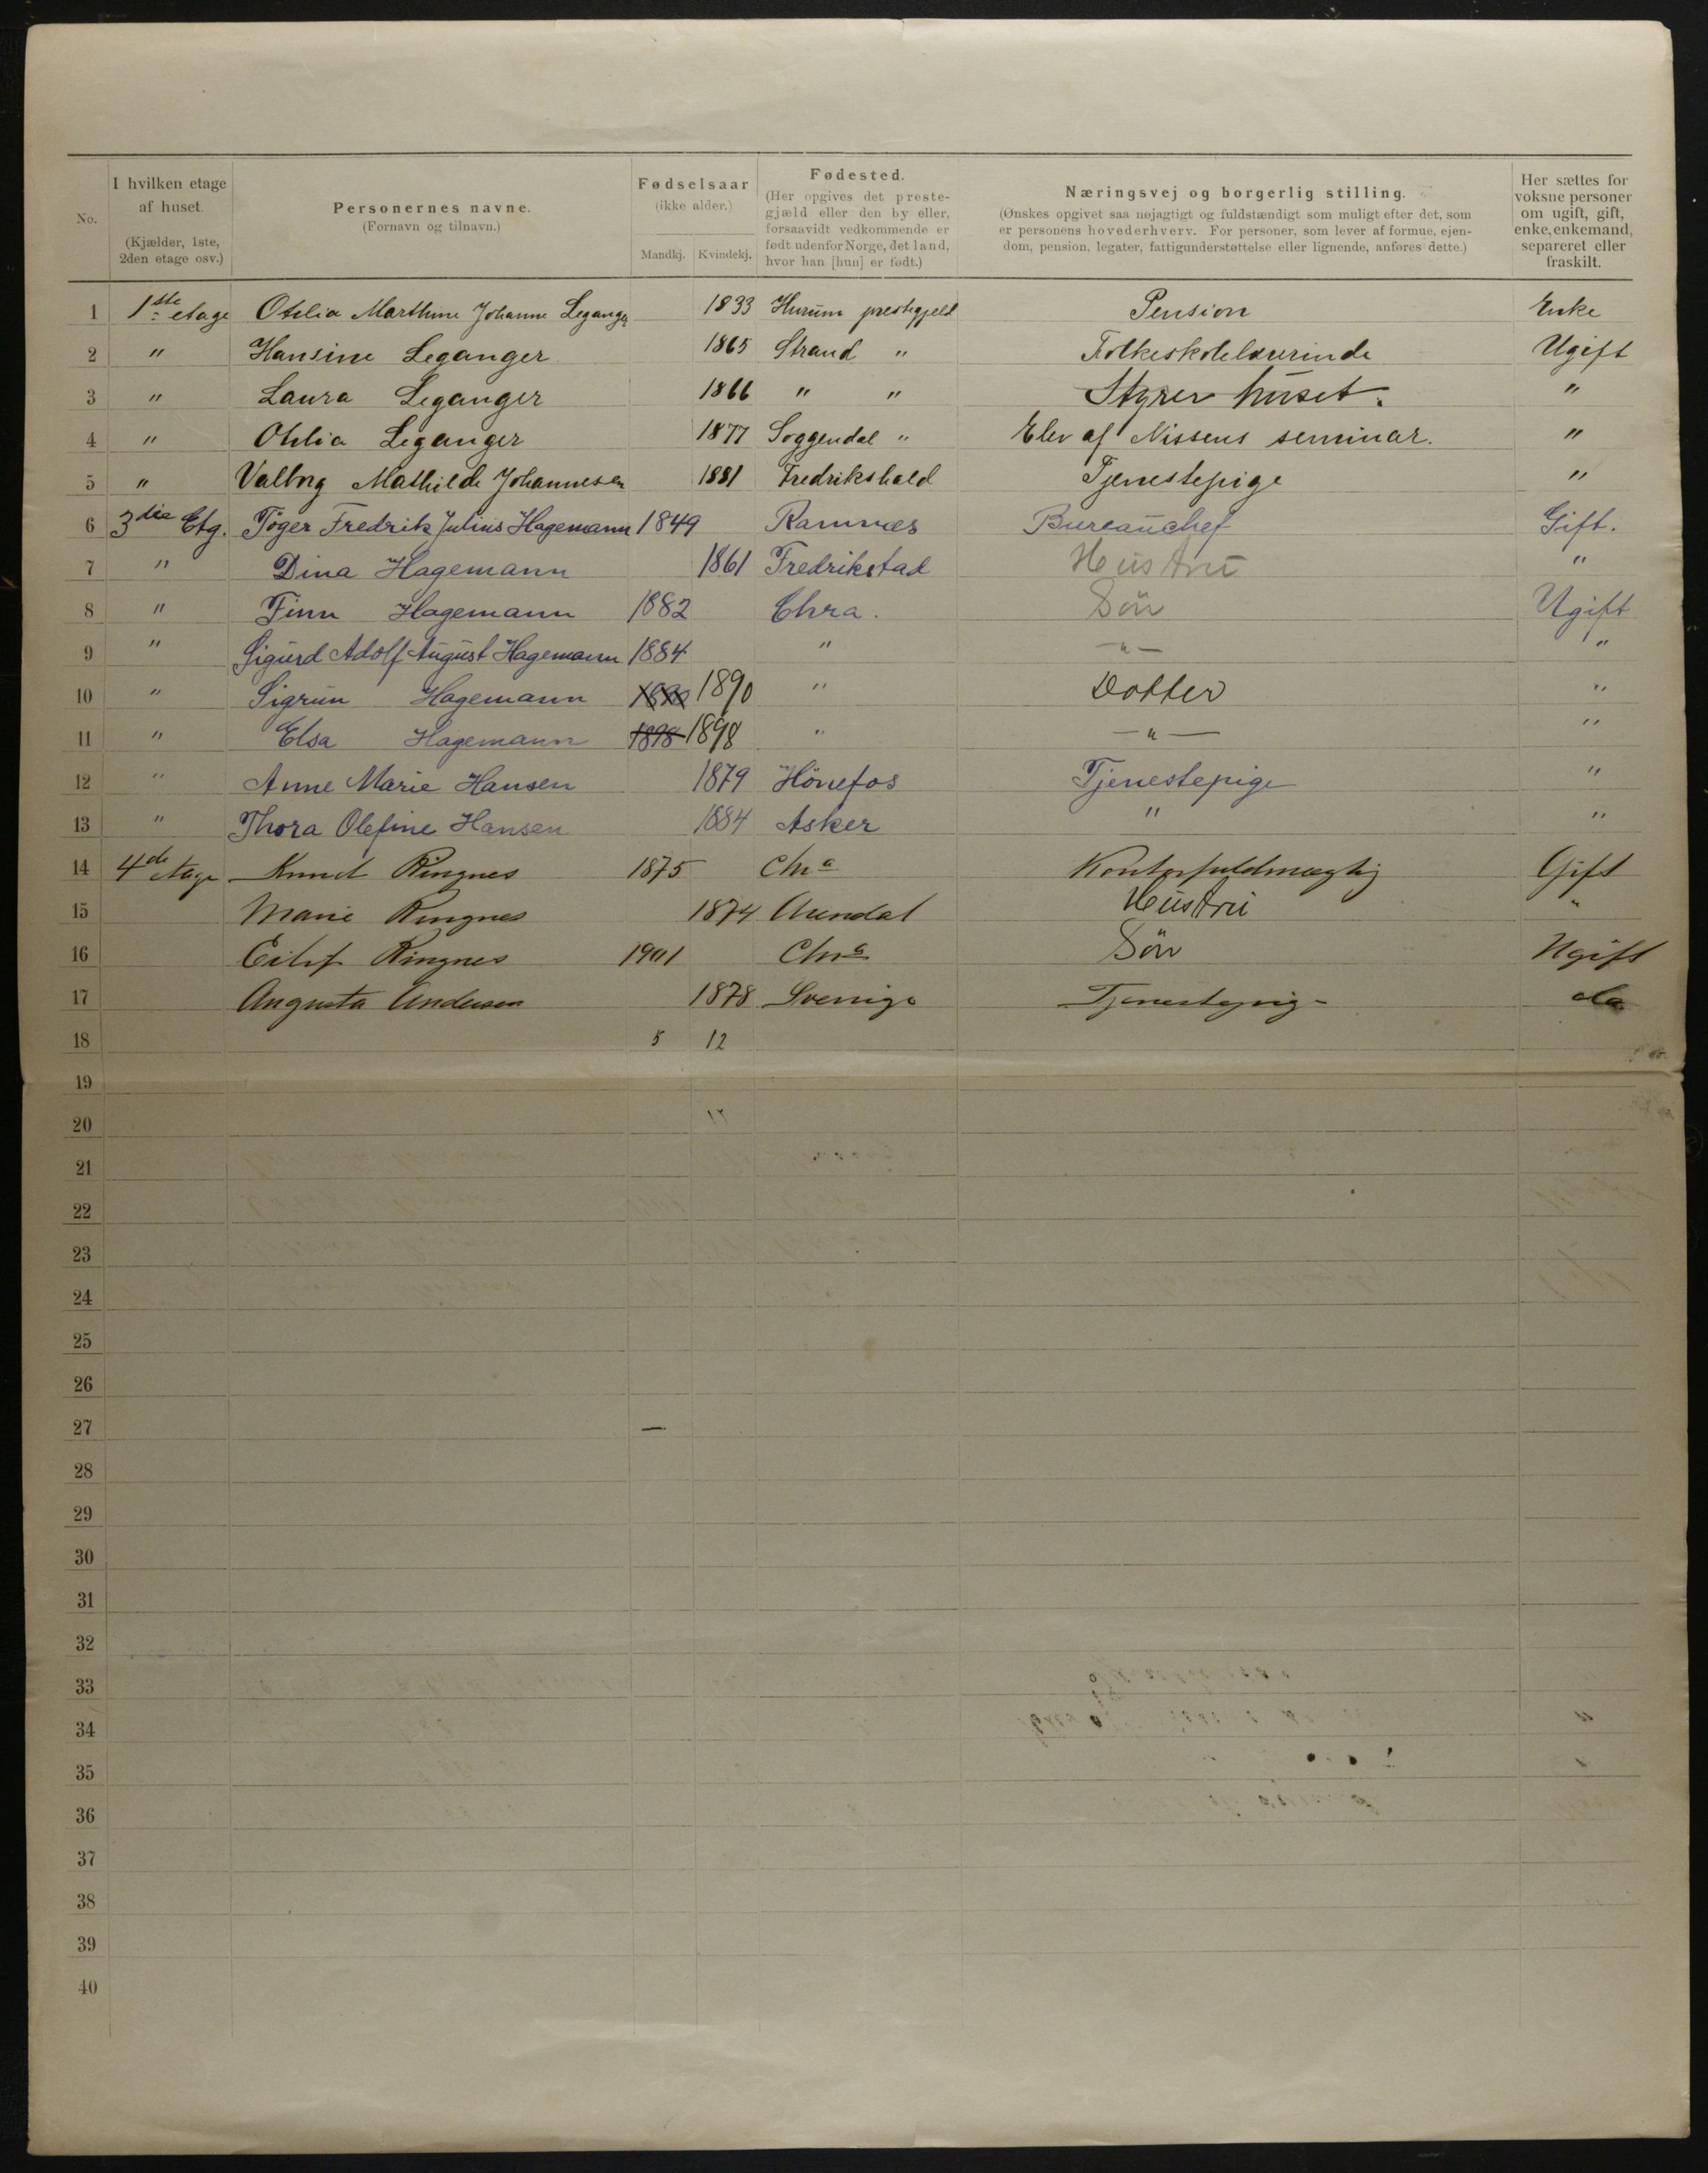 No. | I hvilken etage af huset. (Kjælder, 1ste, 2den etage osv.) | Personernes navne. (Fornavn og tilnavn.) | Fødselsaar (ikke alder.) Mandkj. Kvindekj. | Fødested. (Her opgives det prestegjæld eller den by eller, forsaavidt vedkommende er født udenfor Norge, det land, hvor han [hun] er født.) | Næringsvej og borgerlig stilling. (Ønskes opgivet saa nøjagtigt og fuldstændigt som muligt efter det, som er personens hovederhverv. For personer, som lever af formue, ejendom, pension, legater, fattigunderstøttelse eller lignende, anføres dette.) | Her sættes for voksne personer om ugift, gift, enke, enkemand, separeret eller fraskilt.
1 1ste etage Othilia Marthine Johanne Leganger 1833 Hurum prestegjeld Pension Enke
2 " Hansine Leganger 1865 Strand " Folkeskolelærerinde Ugift
3 " Laura Leganger 1866 " " Styrer huset. "
4 " Othlia Leganger 1877 Soggendal " Elev af Nissens seminar. "
5 " Valborg Mathilde Johannesen 1881 Fredrikshald Tjenestepige "
6 3die Etg. Töger Fredrik Julius Hagemann 1849 Ramnæs Bureauchef Gift.
7 " Dina Hagemann 1861 Fredrikstad Hustru "
8 " Finn Hagemann 1882 Chra. Sön Ugift
9 " Sigurd Adolf August Hagemann 1884 " — " — "
10 " Sigrun Hagemann 1890 1890 " Dotter "
11 " Elsa Hagemann 1898 1898 " — " — "
12 " Anne Marie Hansen 1879 Hönefos Tjenestepige "
13 " Thora Olefine Hansen 1884 Asker " "
14 4de etage Knud Ringnes 1875 Chra Kontorfuldmægtig Gift
15 Marie Ringnes 1874 Arendal Hustru "
16 Eilif Ringnes 1901 Chra Sön Ugift
17 Augusta Andersen 1878 Sverrige Tjenestepige do
18 5 12
19
20
21
22
23
24
25
26
27 —
28
29
30
31
32
33
34
35
36
37
38
39
40